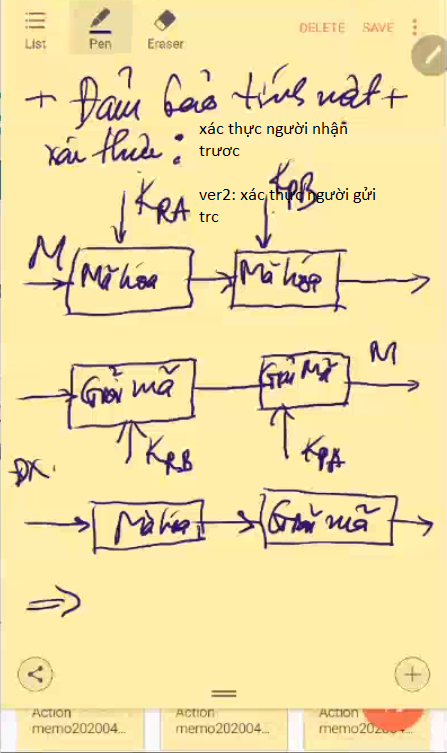 List Pen Eraser DELETE SAVE
+ Đảm bảo tính mật +
xác thực : xác thực người nhận
trươc
K_RA K_PB ver2: xác thực người gửi
trc
M Mã hóa Mã hóa
Giải mã Giải Mã M
K_RB K_PA
ĐX.
Mã hóa Giải mã
=>
Action Action Action
memo202004... memo202004... memo202004...